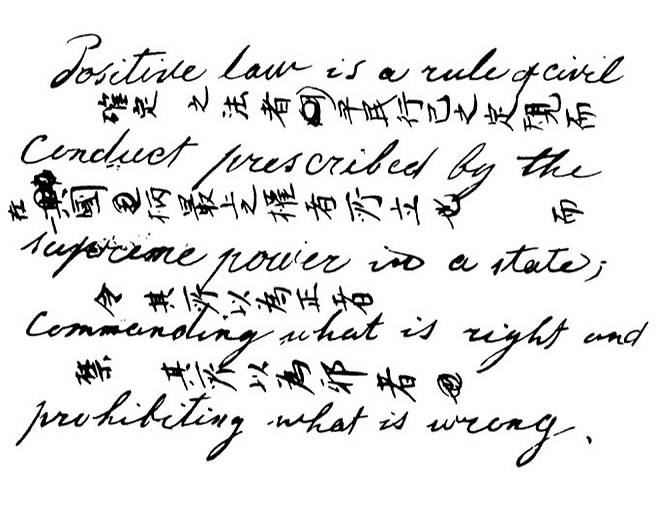 Positive law is a rule of civil
確定之法者平民行己之定規而
conduct prescribed by the
在國柄最上之權者所立也而
supreme power in a state;
令其所以為正者
commanding what is right and
禁其所以為邪者
prohibiting what is wrong.